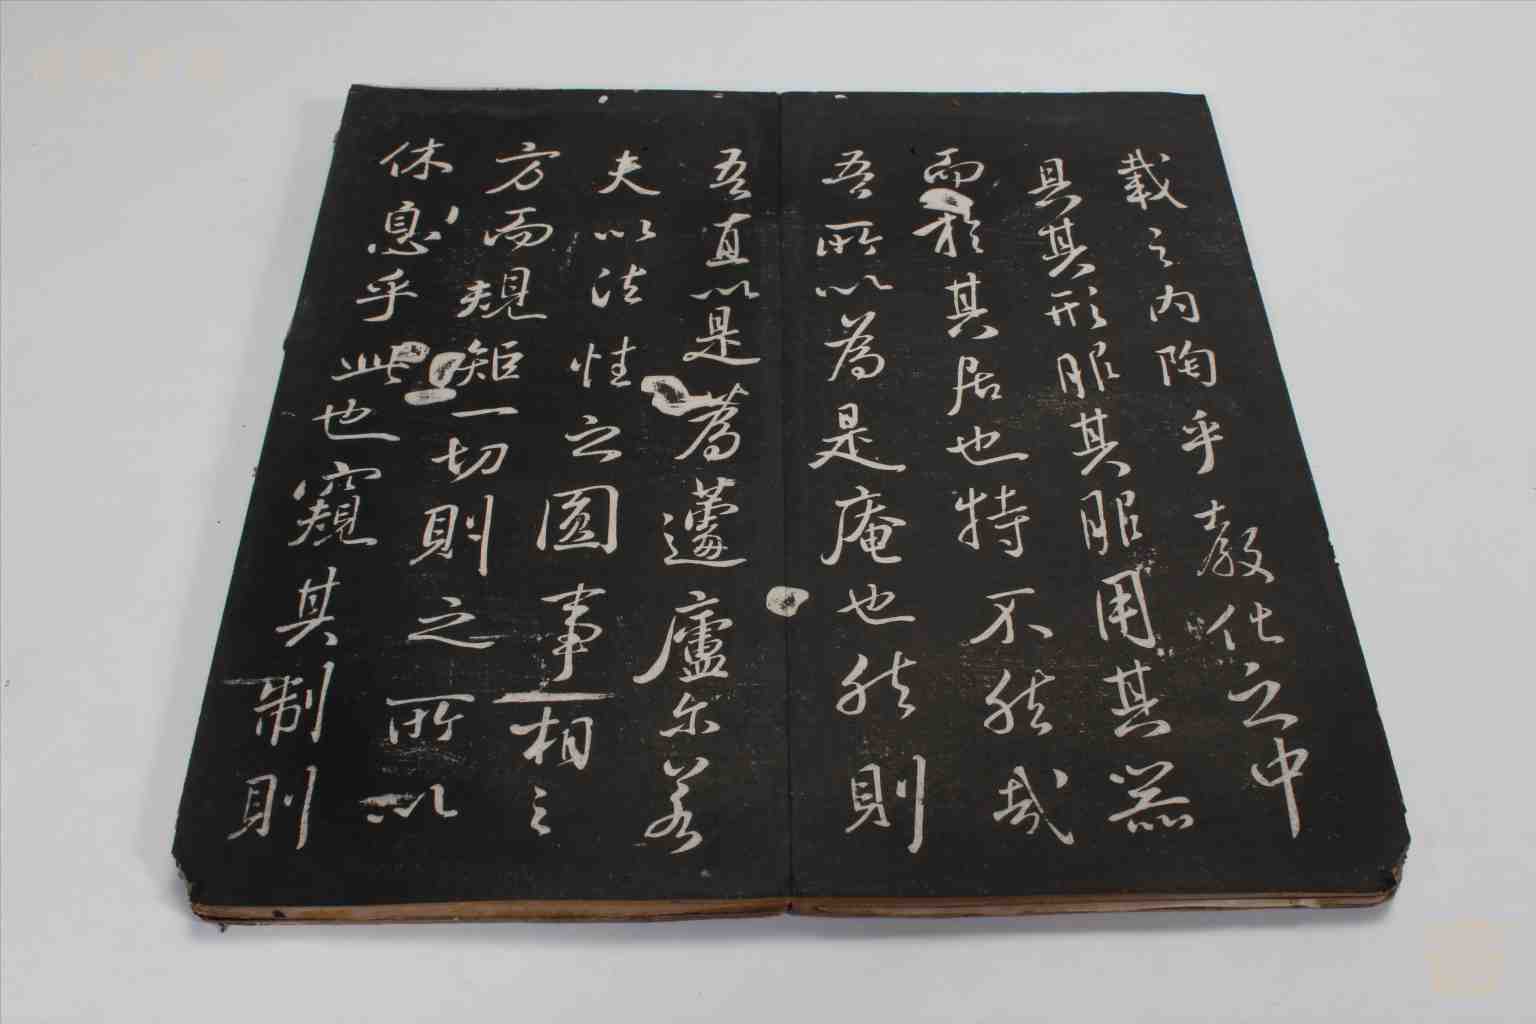 載之内陶乎教化之中
具其形服其服用其器
而於其居也特不然哉
吾所以為是庵也然則
吾直以是為蘧廬尔若
夫以法性之圓事相之
方而規矩一切則之所以
休息乎此也窺其制則